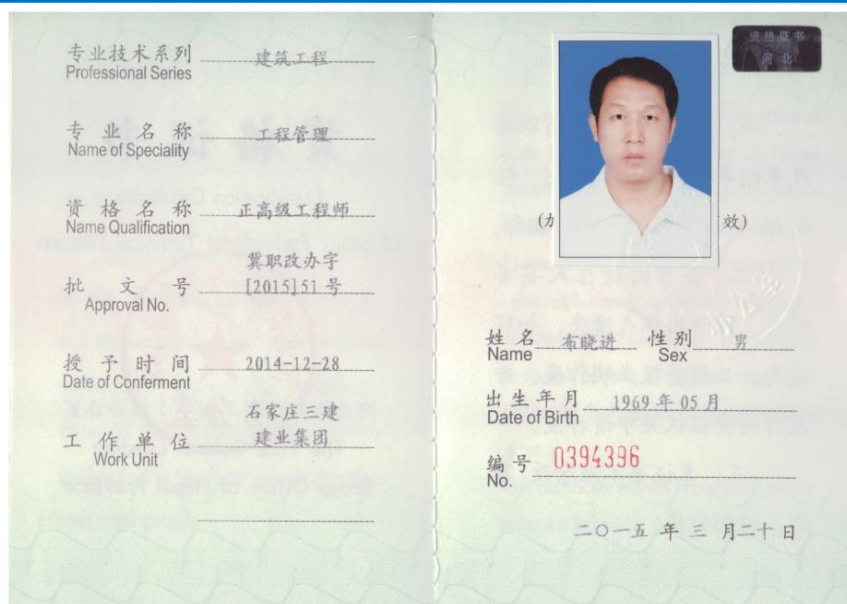 专业技术系列 建筑工程
Professional Series
专业名称 工程管理
Name of Speciality
资格名称 正高级工程师
Name Qualification
冀职改办字
批文号 [2015]51号
Approval No.
授予时间 2014-12-28
Date of Conferment
石家庄三建
工作单位 建业集团
Work Unit
资格证书
河北
效)
姓名 布晓进 性别 男
Name Sex
出生年月 1969年05月
Date of Birth
编号 0394396
No.
二〇一五 年 三 月二十 日